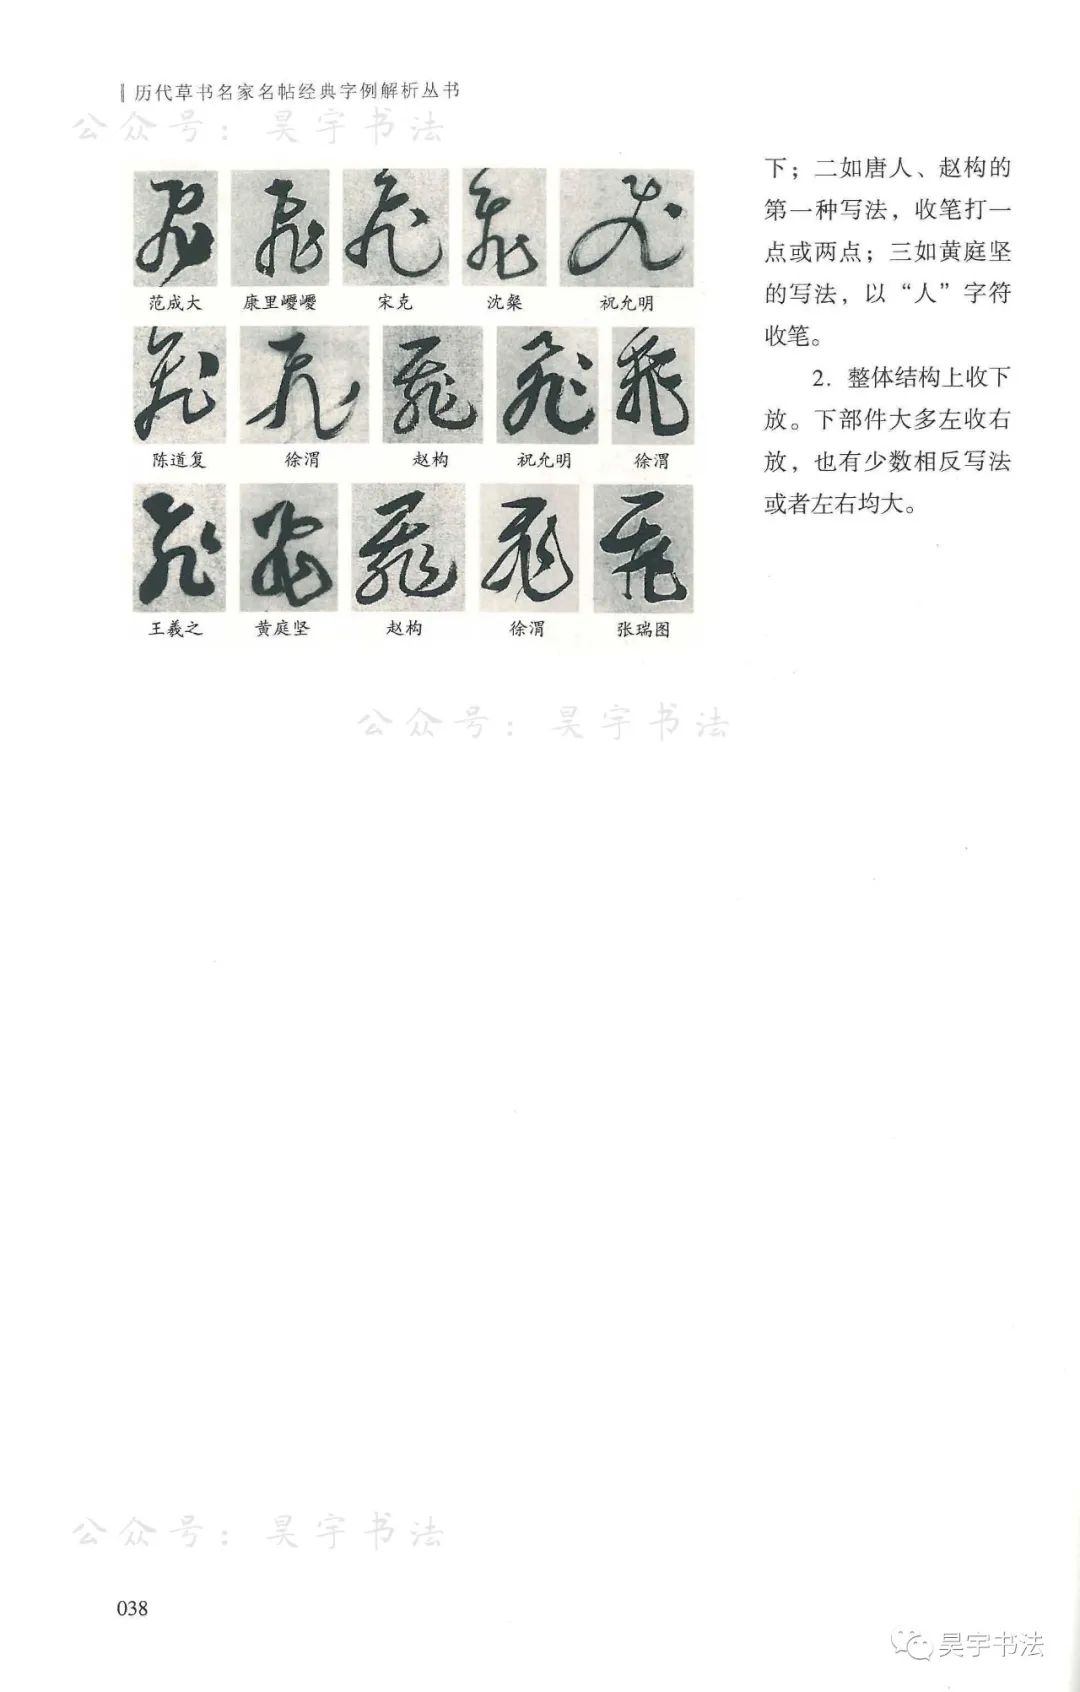 历代草书名家名帖经典字例解析丛书
公众号：昊宇书法
范成大 康里巎巎 宋克 沈粲 祝允明
陈道复 徐渭 赵构 祝允明 徐渭
王羲之 黄庭坚 赵构 徐渭 张瑞图
下；二如唐人、赵构的
第一种写法，收笔打一
点或两点；三如黄庭坚
的写法，以“人”字符
收笔。
2. 整体结构上收下
放。下部件大多左收右
放，也有少数相反写法
或者左右均大。
公众号：昊宇书法
公众号：昊宇书法
038
昊宇书法